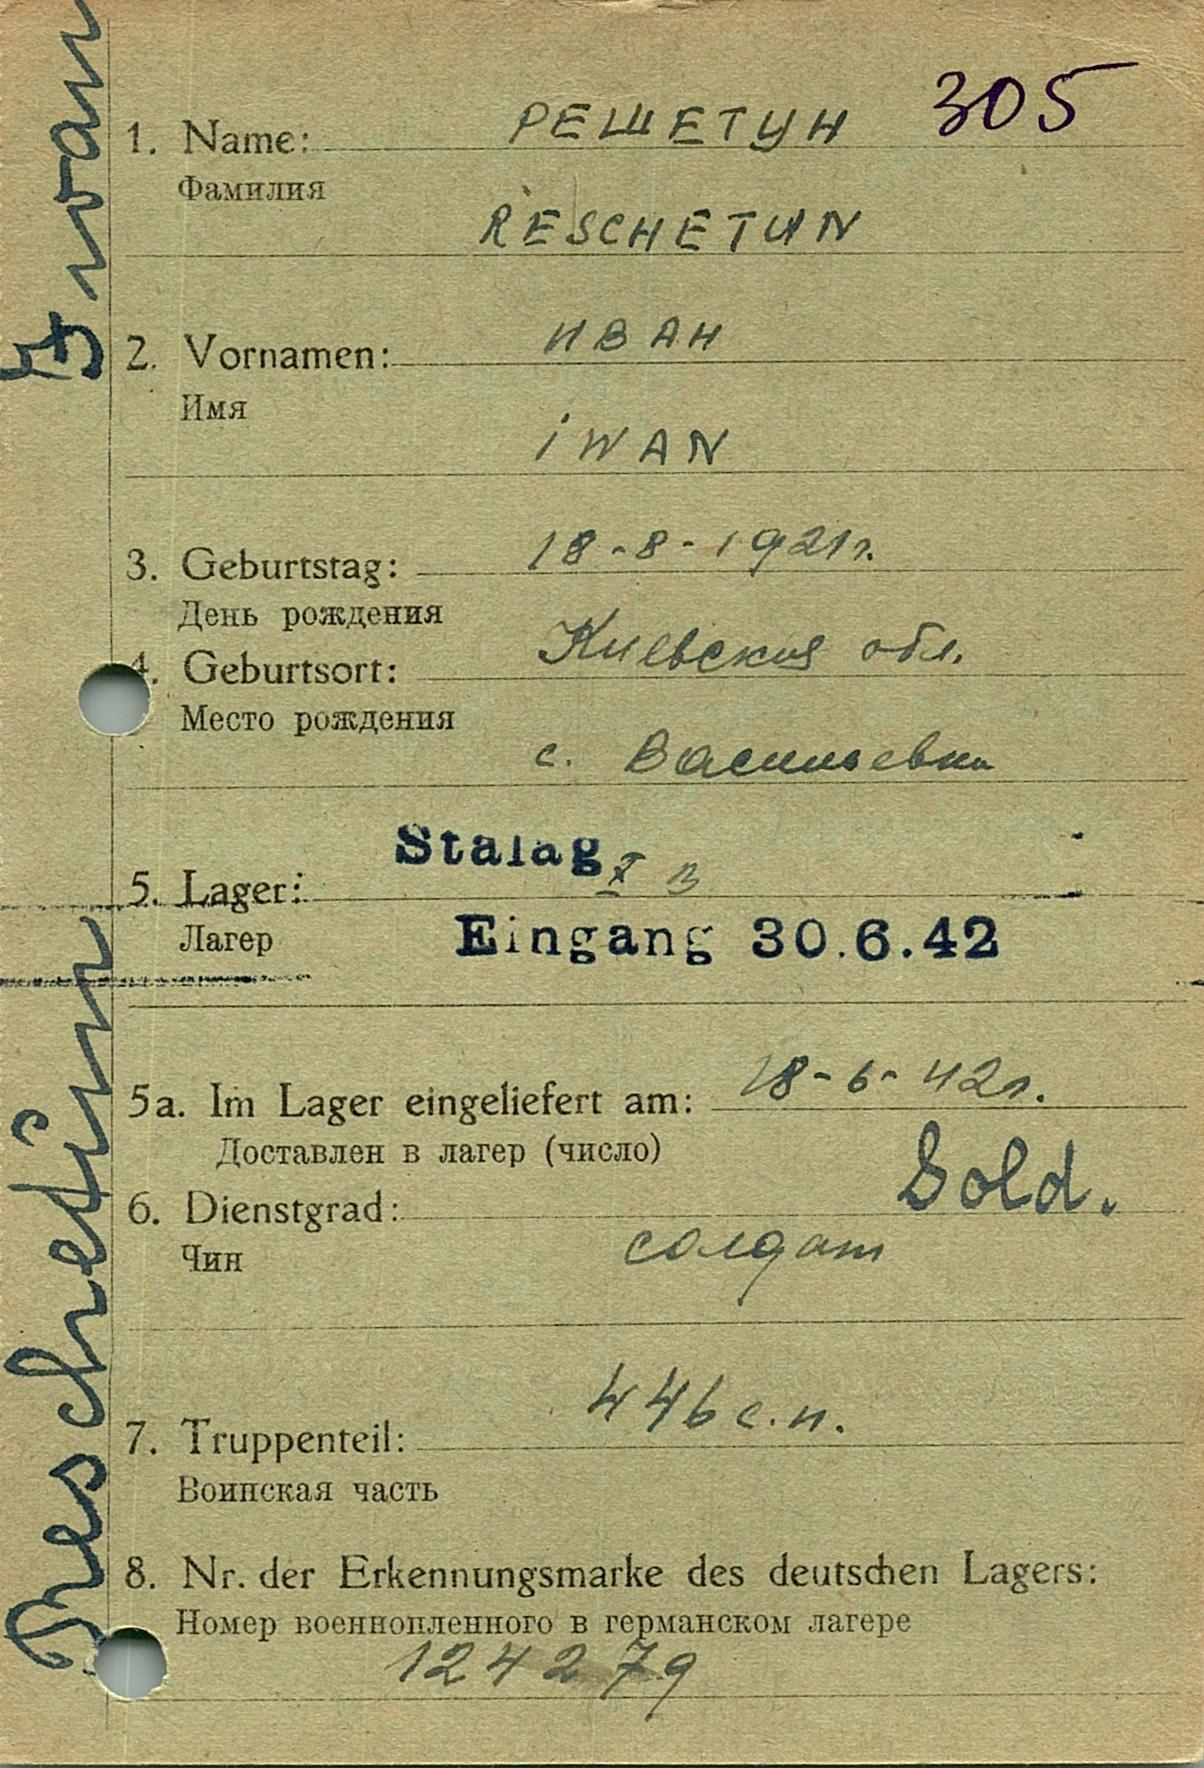 305
1. Name: РЕШЕТУН
Фамилия
RESCHETUN
2. Vornamen: ИВАН
Имя
iWAN
3. Geburtstag: 18-8-1921г.
День рождения
4. Geburtsort: Киевская обл.
Место рождения
с. Васильевка
Stalag X B
5. Lager:
Лагер
Eingang 30.6.42
5a. Im Lager eingeliefert am: 18-6-42г.
Доставлен в лагер (число)
Sold.
6. Dienstgrad:
Чин солдат
446 с.п.
7. Truppenteil:
Воинская часть
8. Nr. der Erkennungsmarke des deutschen Lagers:
Номер военнопленного в германском лагере
124279
Reschetun Iwan